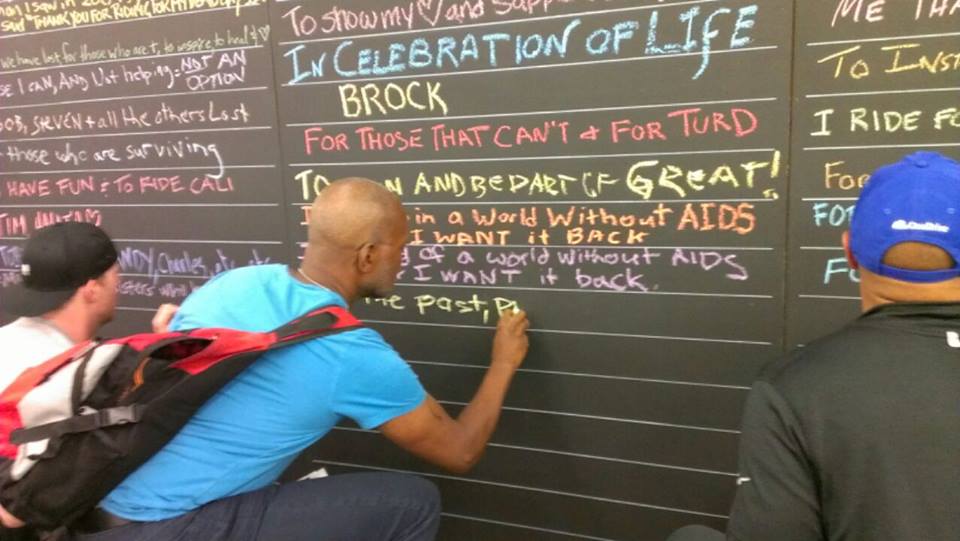 said "THANK YOU FOR RIDING, FOR MY
we have lost, for those who are +, to inspire to
SE I CAN, AND Not helping = NOT AN OPTION
BOB, STEVEN + all the others Lost
those who are surviving
HAVE FUN & TO RIDE CALI
TIM
NDY, Charles, etc
isters who
To show my ♡ and
IN CELEBRATION OF LIFE
BROCK
FOR THOSE THAT CAN'T & FOR TURD
TO AND BE PART OF GREAT!
in a World Without AIDS
I WANT it BACK
of a world without AIDS
I WANT it back.
the past, P
ME THA
TO INST
I RIDE FO
FOR
FO
F
OneDrive